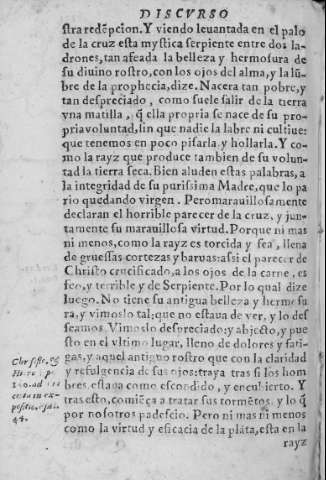 DISCVRSO
stra redẽpcion. Y viendo leuantada en el palo
de la cruz esta mystica serpiente entre dos la-
drones, tan afeada la belleza y hermosura de
su diuino rostro, con los ojos del alma, y la lũ
bre de la prophecia, dize. Nacera tan pobre, y
tan despreciado, como suele salir de la tierra
vna matilla, q̃ ella propria se nace de su pro-
pria voluntad, sin que nadie la labre ni cultiue:
que tenemos en poco pisarla, y hollarla. Y co-
mo la rayz que produce tambien de su volun-
tad la tierra seca. Bien aluden estas palabras, a
la integridad de su purissima Madre, que lo pa
rio quedando virgen. Pero marauillosamente
declaran el horrible parecer de la cruz, y jun-
tamente su marauillosa virtud. Porque ni mas
ni menos, como la rayz es torcida y fea, llena
de gruessas cortezas y baruas: assi el parecer de
Christo crucificado, a los ojos de la carne, es
feo, y terrible y de Serpiente. Por lo qual dize
luego. No tiene su antigua belleza y hermosu
ra, y vimoslo tal, que no estaua de ver, y lo des
seamos. Vimoslo despreciado: y abjecto, y pue
sto en el vltimo lugar, lleno de dolores y fati-
gas, y aquel antiguo rostro que con la claridad
y refulgencia de sus ojos: traya tras si los hom
bres, estaua como escondido, y encubierto. Y
tras esto, comiẽça a tratar sus tormẽtos, y lo q̃
por nosotros padescio. Pero ni mas ni menos
como la virtud y eficacia de la plãta, esta en la
rayz
Chrysost.
ad
in ex-
44.